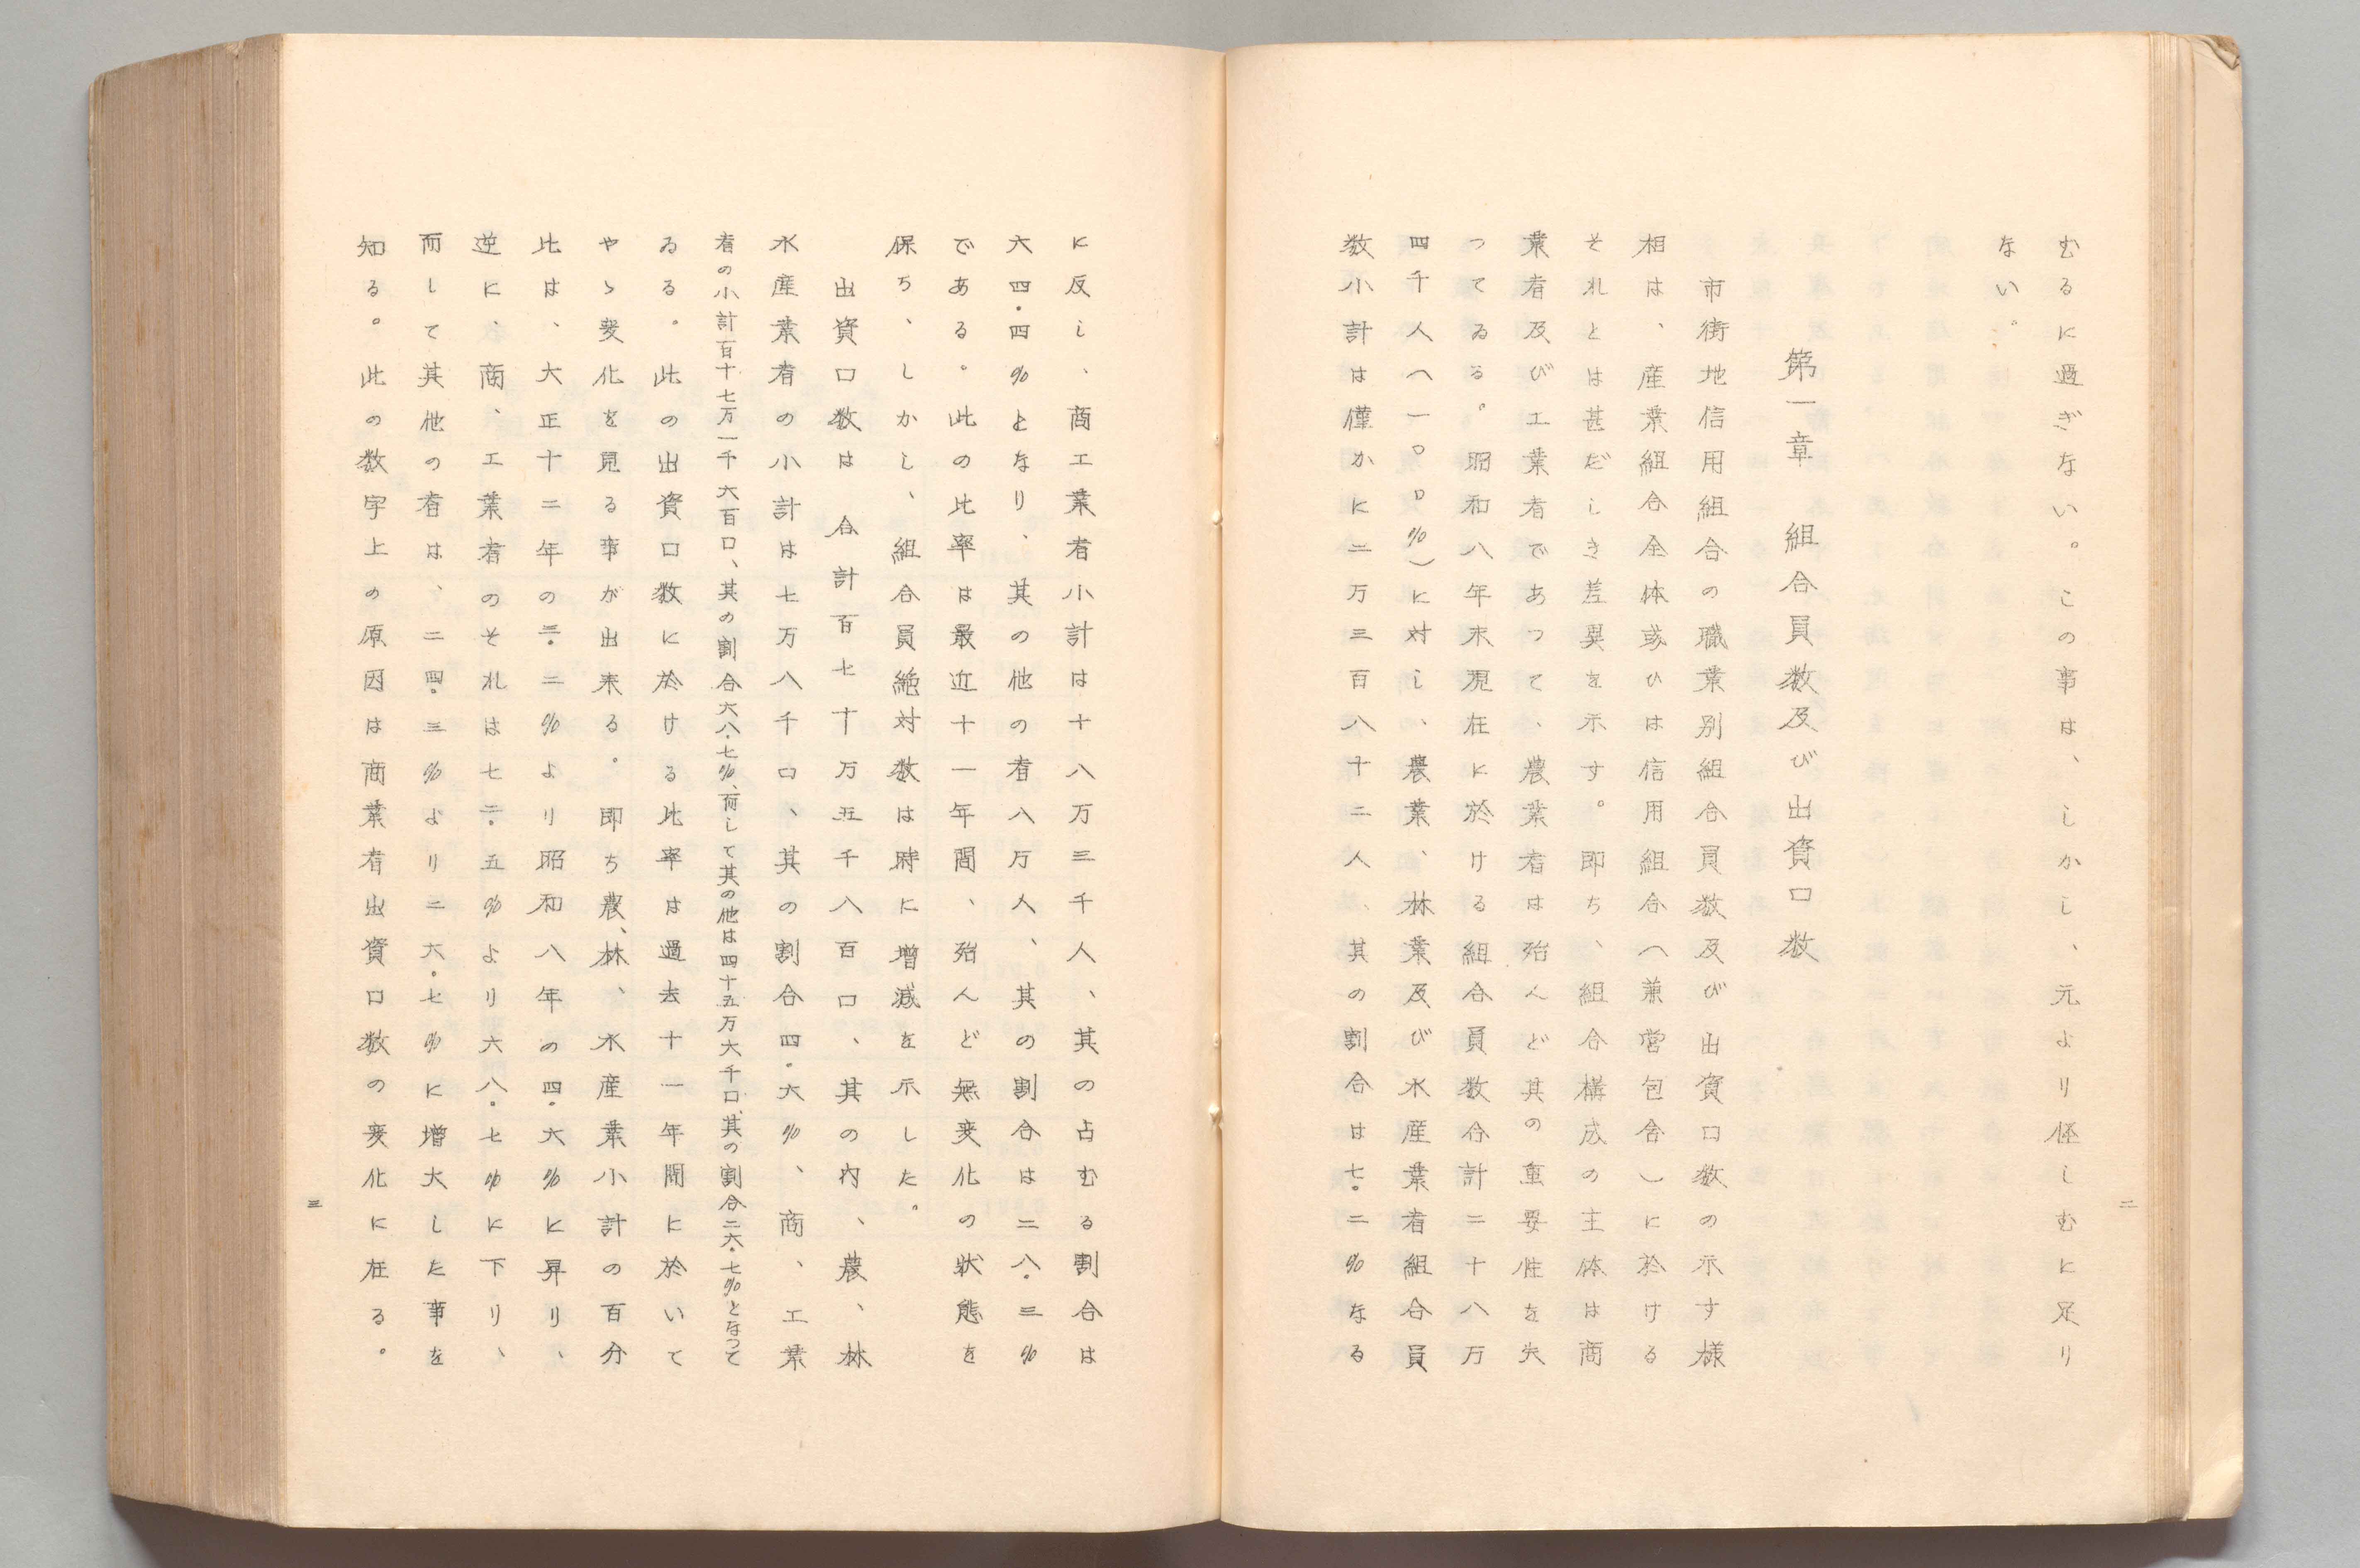 むるに過ぎない。この事は、しかし、元より怪しむに足り
ない。
第一章　組合員数及び出資口数
市街地信用組合の職業別組合員数及び出資口数の示す様
相は、産業組合全体或ひは信用組合（兼営包含）に於ける
それとは甚だしき差異を示す。即ち、組合構成の主体は商
業者及び工業者であつて、農業者は殆んど其の重要性を失
つてゐる。昭和八年末現在に於ける組合員数合計二十八万
四千人（一〇〇％）に対し、農業、林業及び水産業者組合員
数小計は僅かに二万三百八十二人、其の割合は七・二％なる
二
に反し、商工業者小計は十八万三千人、其の占むる割合は
六四・四％となり、其の他の者八万人、其の割合は二八・三％
である。此の比率は最近十一年間、殆んど無変化の状態を
保ち、しかし、組合員絶対数は時に増減を示した。
出資口数は合計百七十万五千八百口、其の内、農、林
水産業者の小計は七万八千口、其の割合四・六％、商、工業
者の小計百十七万一千六百口、其の割合六八・七％、而して其の他は四十五万六千口、其の割合二六・七％となつて
ゐる。此の出資口数に於ける比率は過去十一年間に於いて
やゝ変化を見る事が出来る。即ち農、林、水産業小計の百分
比は、大正十二年の三・二％より昭和八年の四・六％に昇り、
逆に、商、工業者のそれは七二・五％より六八・七％に下り、
而して其他の者は、二四・三％より二六・七％に増大した事を
知る。此の数字上の原因は商業者出資口数の変化に在る。
三